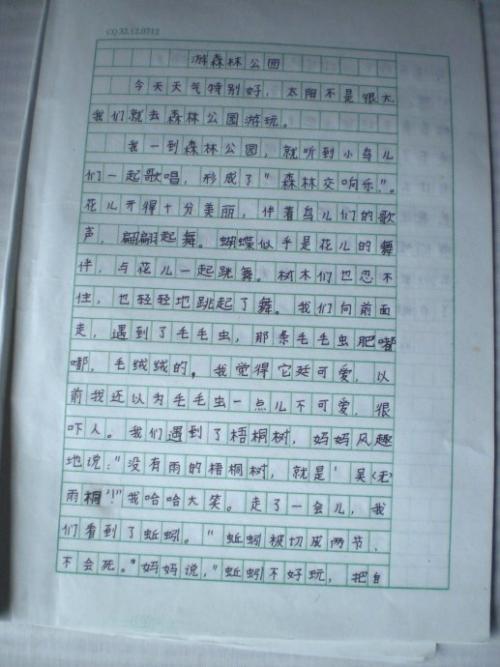 CQ32.12.0712
游森林公园
今天天气特别好，太阳不是很大，
我们就去森林公园游玩。
我一到森林公园，就听到小鸟儿
们一起歌唱，形成了“森林交响乐”。
花儿开得十分美丽，伴着鸟儿们的歌
声，翩翩起舞。蝴蝶似乎是花儿的舞
伴，与花儿一起跳舞。树木们也忍不
住，也轻轻地跳起了舞。我们向前面
走，遇到了毛毛虫，那条毛毛虫肥嘟
嘟，毛绒绒的，我觉得它廷可爱，以
前我还以为毛毛虫一点儿不可爱，很
吓人。我们遇到了梧桐树，妈妈风趣
地说：“没有雨的梧桐树，就是‘吴〈无〉
雨桐’！”我哈哈大笑。走了一会儿，我
们看到了蚯蚓。“蚯蚓被切成两节，
不会死。”妈妈说，“蚯蚓不好玩，把自